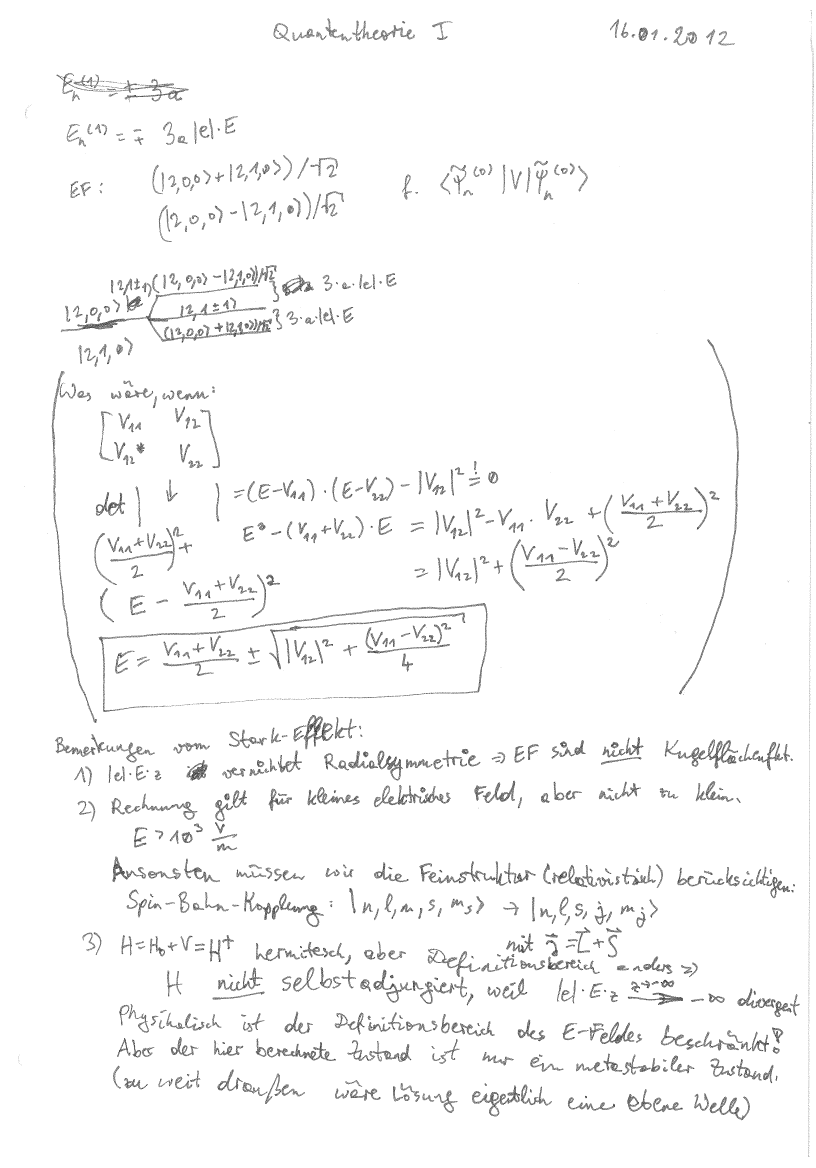 Quantentheorie I 16.01.2012
E_n^(1) = ∓ 3a
E_n^(1) = ∓ 3a|e|·E
EF: (|2,0,0⟩+|2,1,0⟩)/√2
(|2,0,0⟩-|2,1,0⟩)/√2 f. ⟨ψ̃_n^(0)|V|ψ̃_n^(0)⟩
|2,1±1⟩ (|2,0,0⟩-|2,1,0⟩)/√2 } 3·a·|e|·E
|2,0,0⟩ |2,1±1⟩
(|2,0,0⟩+|2,1,0⟩)/√2 } 3·a·|e|·E
|2,1,0⟩
(Was wäre, wenn:
[V_11 V_12
V_12* V_22]
det | ↓ | = (E-V_11)·(E-V_22) - |V_12|² =! 0
(V_11+V_22/2)² + E² - (V_11+V_22)·E = |V_12|² - V_11·V_22 + (V_11+V_22/2)²
(E - V_11+V_22/2)² = |V_12|² + (V_11-V_22/2)²
E = V_11+V_22/2 ± √|V_12|² + (V_11-V_22)²/4 )
Bemerkungen vom Stark-Effekt:
1) |e|·E·z vernichtet Radialsymmetrie ⇒ EF sind nicht Kugelflächenfkt.
2) Rechnung gilt für kleines elektrisches Feld, aber nicht zu klein.
E > 10³ V/m
Ansonsten müssen wir die Feinstruktur (relativistisch) berücksichtigen:
Spin-Bahn-Kopplung: |n,l,m,s,m_s⟩ → |n,l,s,j,m_j⟩
mit J⃗=L⃗+S⃗
3) H=H_0+V=H^+ hermitesch, aber Definitionsbereich anders ⇒
H nicht selbstadjungiert, weil |e|·E·z z→-∞ → -∞ divergent
Physikalisch ist der Definitionsbereich des E-Feldes beschränkt!
Aber der hier berechnete Zustand ist nur ein metastabiler Zustand.
(zu weit draußen wäre Lösung eigentlich eine ebene Welle)